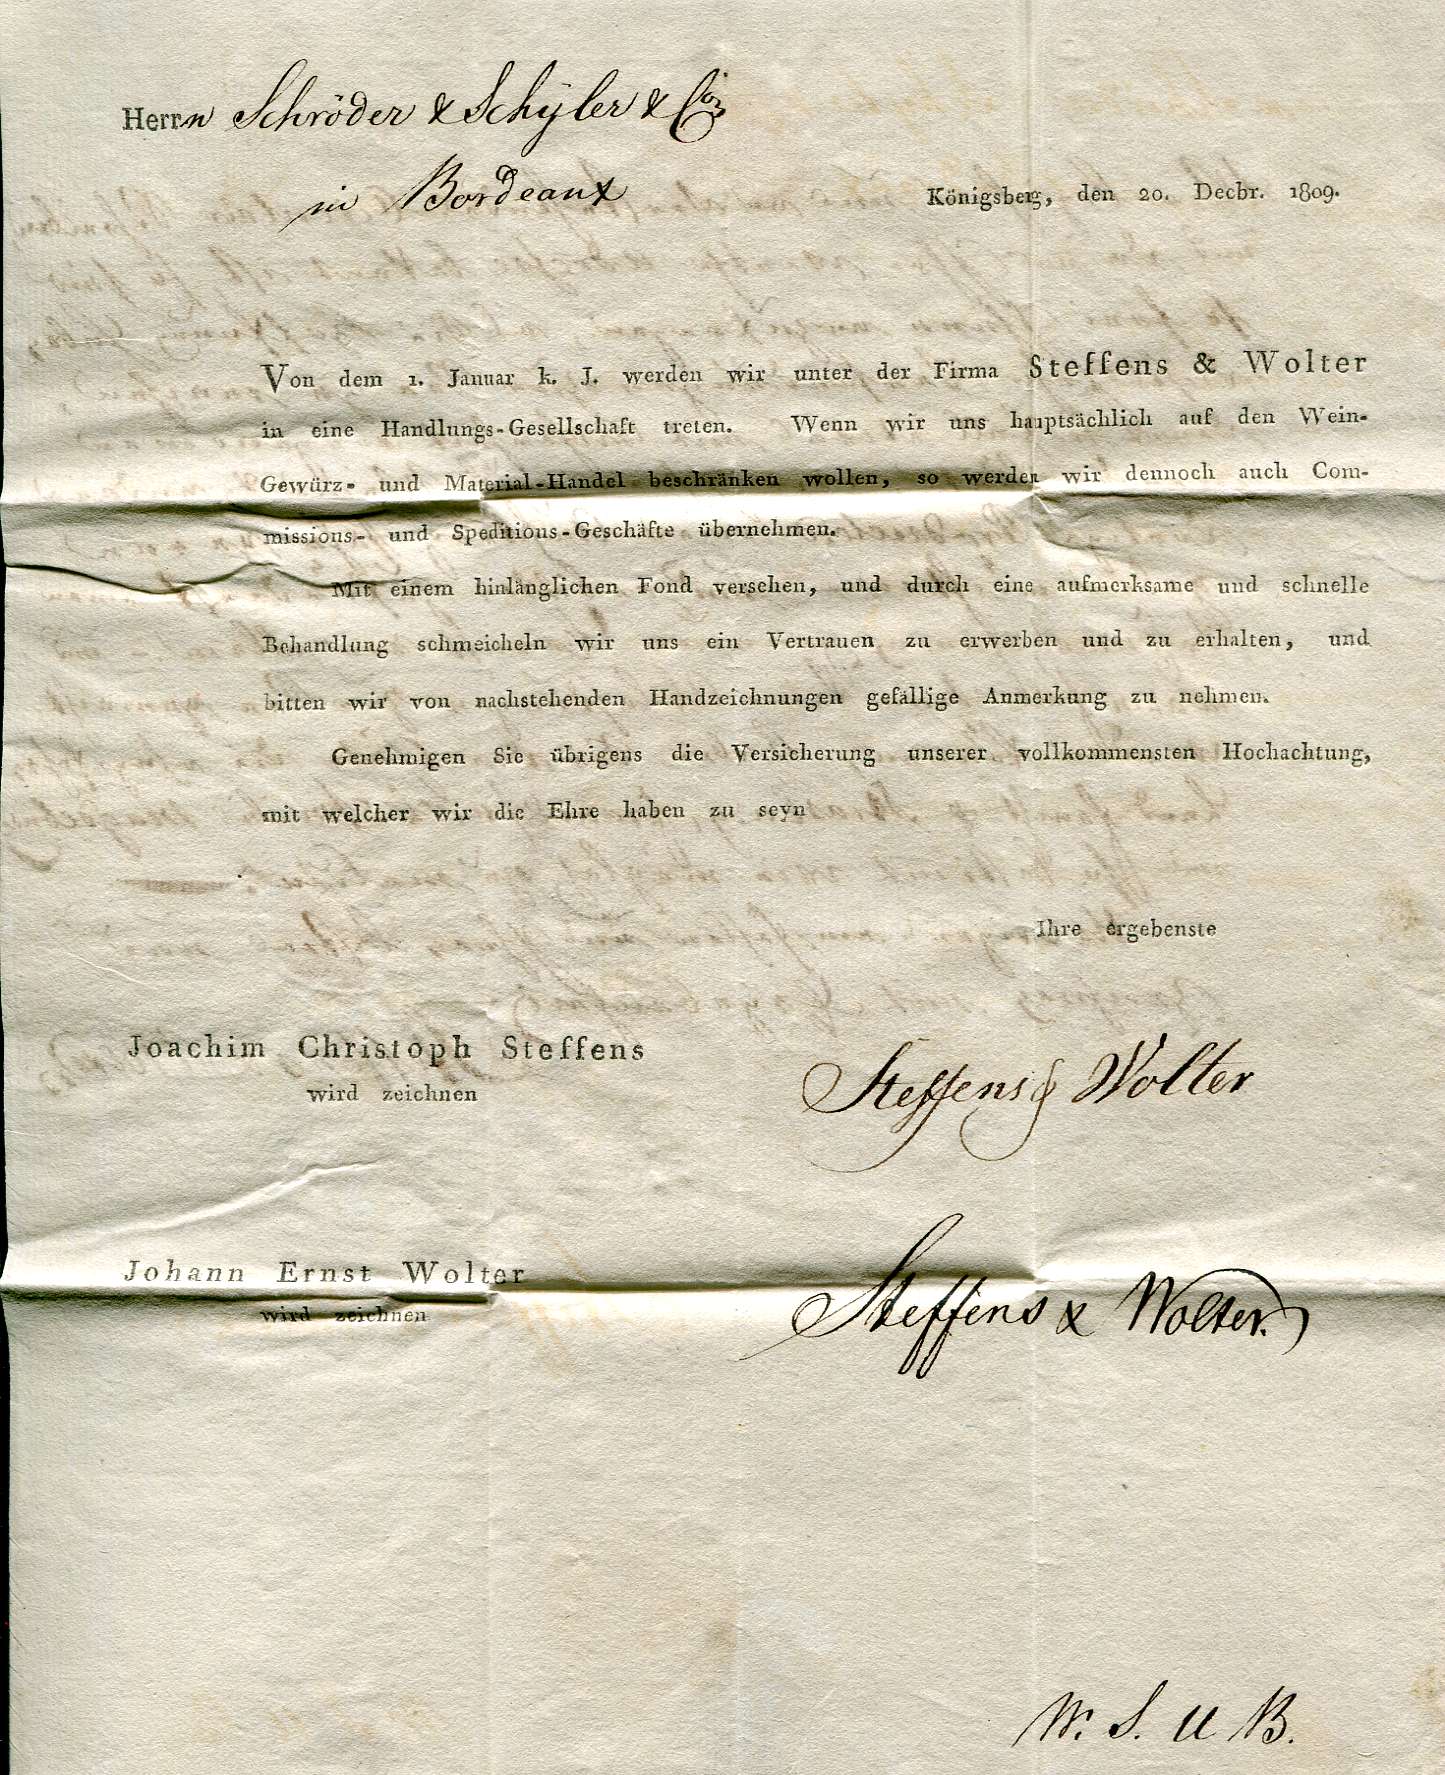 Herrn Schröder & Schÿler & Co
in Bordeaux
Königsberg, den 20. Decbr. 1809.
Von dem 1. Januar k. J. werden wir unter der Firma Steffens & Wolter
in eine Handlungs-Gesellschaft treten. Wenn wir uns hauptsächlich auf den Wein-
Gewürz- und Material-Handel beschränken wollen, so werden wir dennoch auch Com-
missions- und Speditions-Geschäfte übernehmen.
Mit einem hinlänglichen Fond versehen, und durch eine aufmerksame und schnelle
Behandlung schmeicheln wir uns ein Vertrauen zu erwerben und zu erhalten, und
bitten wir von nachstehenden Handzeichnungen gefällige Anmerkung zu nehmen.
Genehmigen Sie übrigens die Versicherung unserer vollkommensten Hochachtung,
mit welcher wir die Ehre haben zu seyn
Ihre ergebenste
Joachim Christoph Steffens
wird zeichnen
Steffens & Wolter
Johann Ernst Wolter
wird zeichnen
Steffens & Wolter.
W. S. U B.